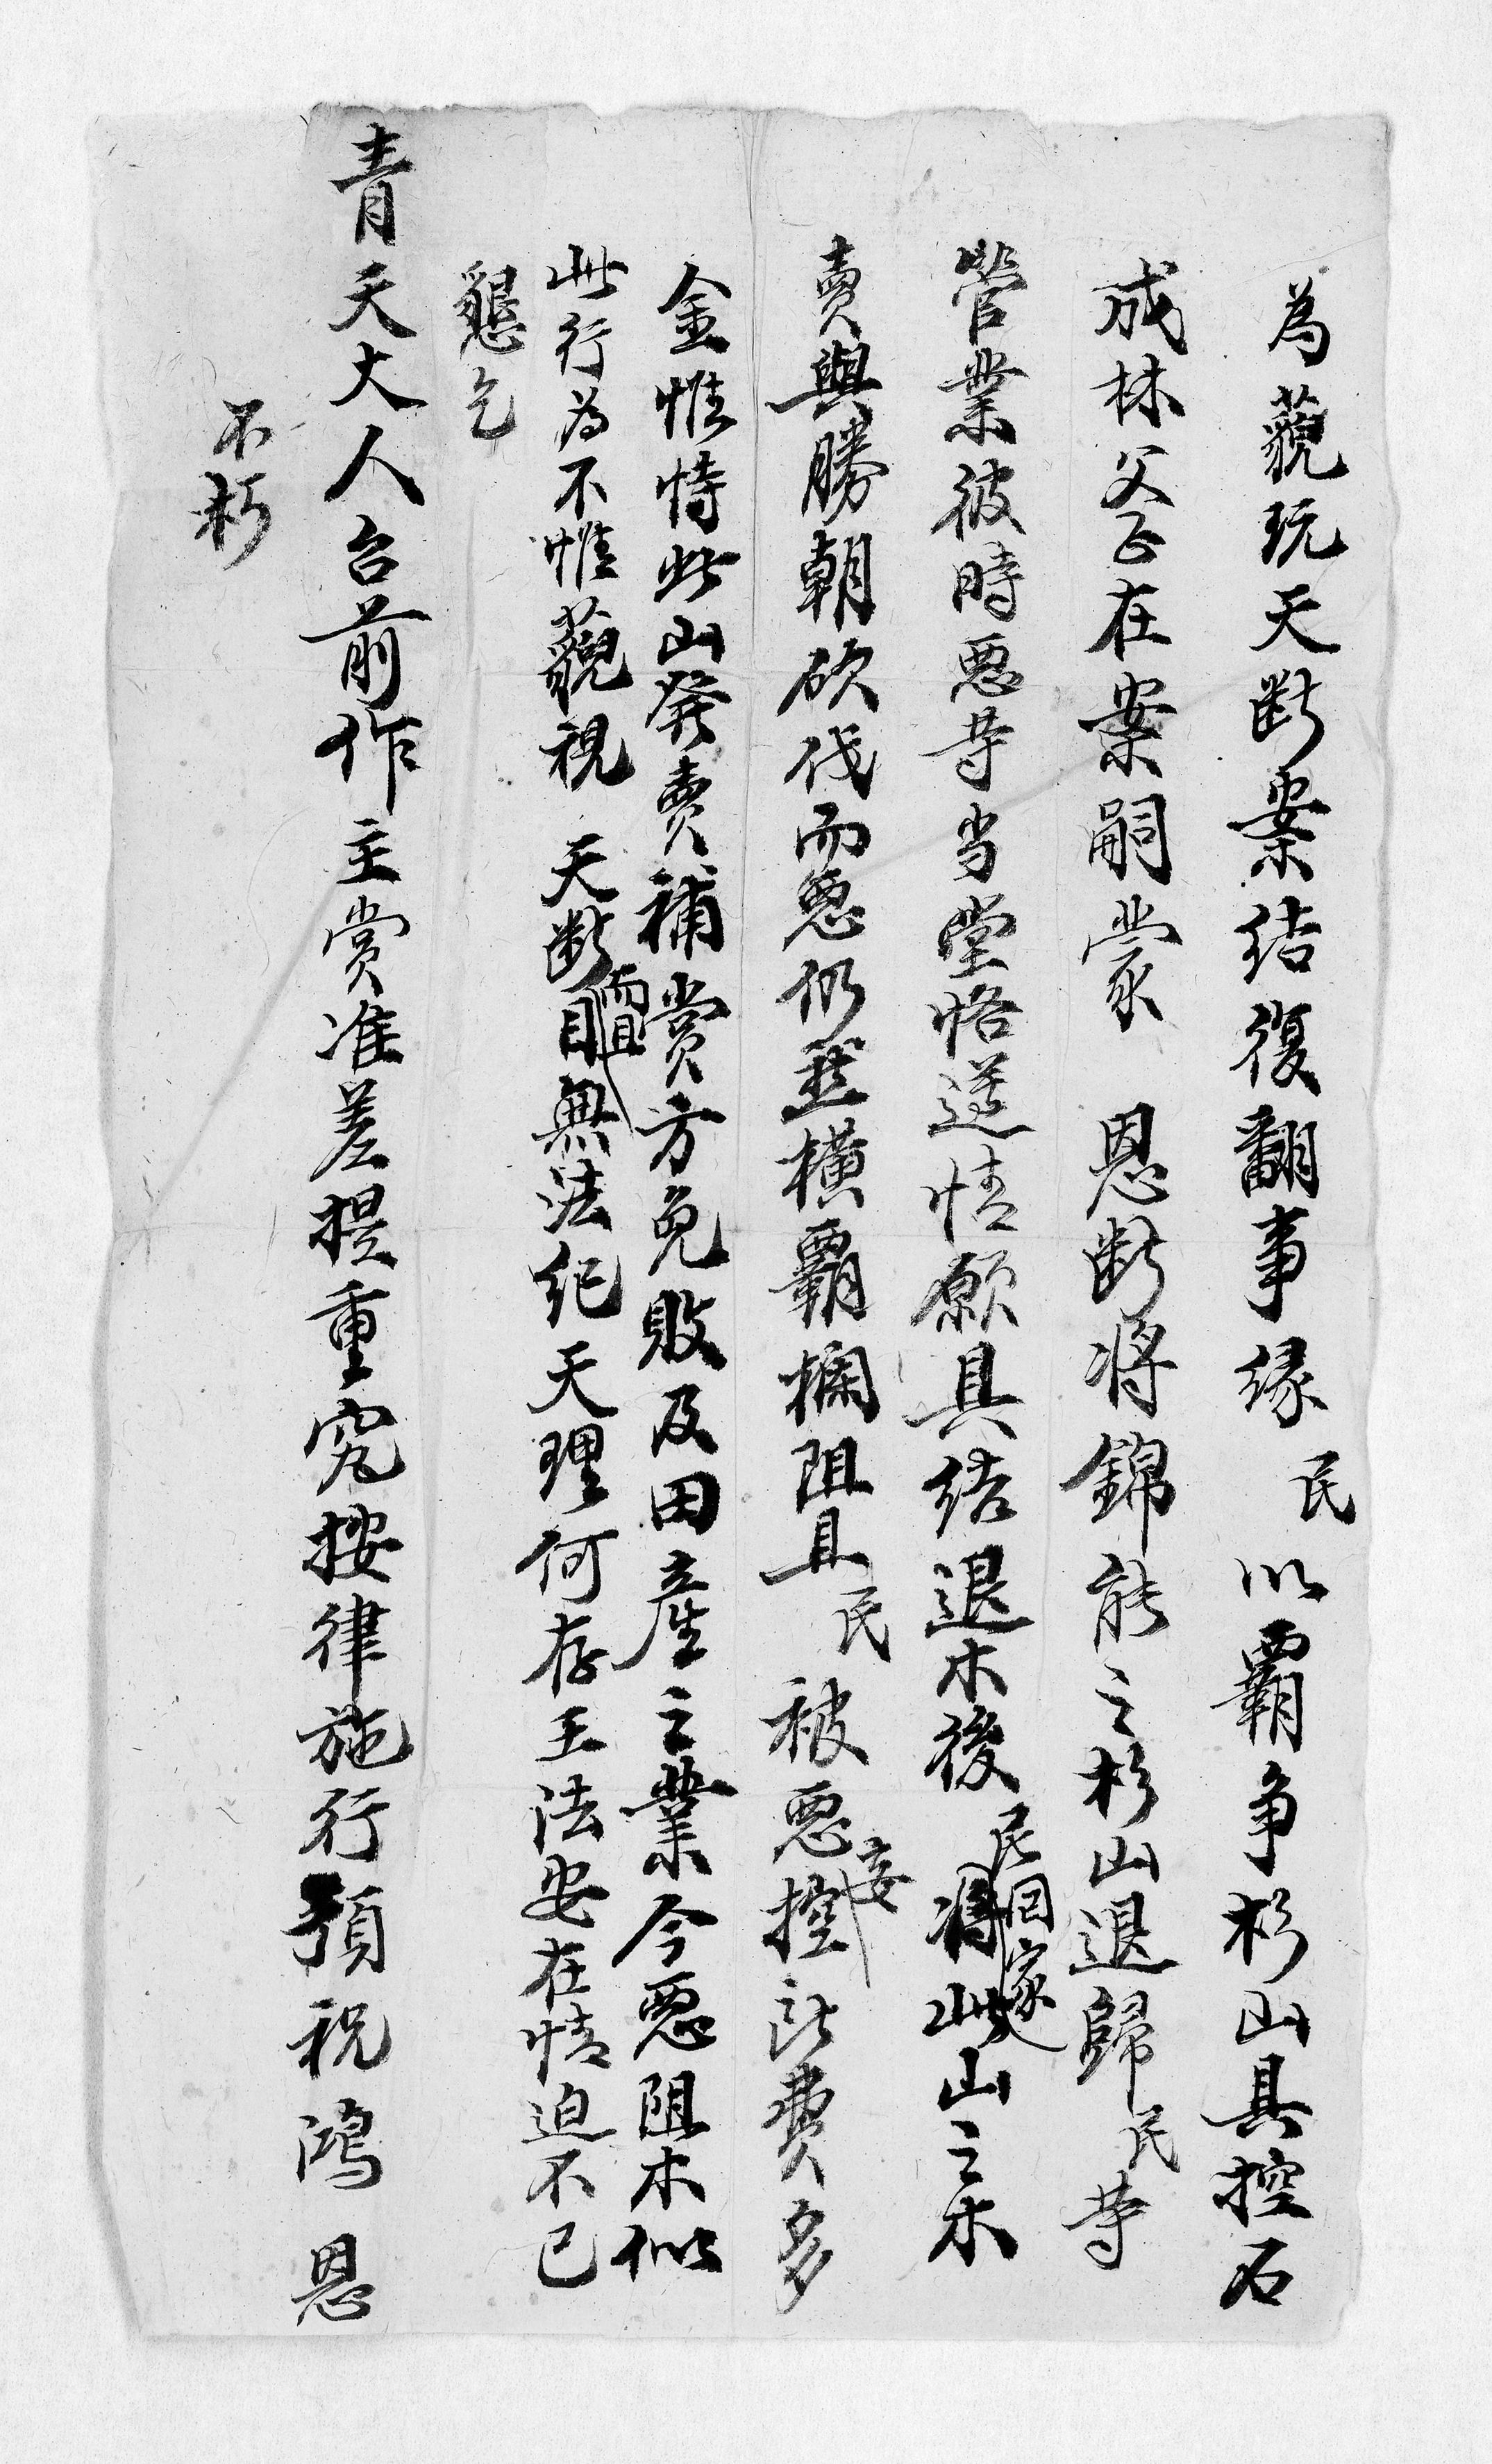 為藐玩天断案结復翻事缘民以霸争杉山具控石
成林父正在案嗣蒙恩断将錦能之杉山退歸民等
管業彼時惡等当堂恪遵情願具结退木後民回家将此山之木
賣與勝朝砍伐而惡仍然横霸攔阻且民被惡妄控訟費多
金惟恃此山発賣補賞方免敗及田産之業今惡阻木似
此行為不惟藐視天断而且目無法纪天理何存王法安在情迫不已
懇乞
青天大人台前作主赏准差提重究按律施行預祝鴻恩
不朽